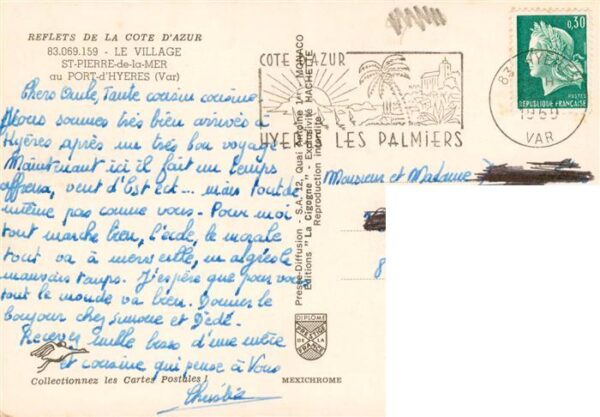 REFLETS DE LA COTE D'AZUR
83.069.159 - LE VILLAGE
ST-PIERRE-de-la-MER
au PORT-d'HYERES (Var)
Chers Oncle, Tante cousin cousine
Nous sommes très bien arrivés à
Hyères après un très bon voyage
Maintenant ici il fait un temps
affreux, vent d'Est ect... mais tout de
même pas comme vous - Pour moi
tout marche bien, l'école, le morale
tout va à merveille, malgrès le
mauvais temps. J'espère que pour vous
tout le monde va bien. Donner le
bonjour chez Simone et Dédé.
Recevez mille bises d'une
et cousine qui pense à Vous
Collectionnez les Cartes Postales !
Presse-Diffusion - S.A. 12, Quai Antoine 1er - MONACO
Editions "La Cigogne" - Exclusivité HACHETTE
Reproduction interdite
DIPLOME
PRESTIGE
DE LA
FRANCE
MEXICHROME
COTE D'AZUR
HYERES LES PALMIERS
83 HYERES
1969
VAR
0,30
POSTES
REPUBLIQUE FRANÇAISE
Monsieur et Madame
8